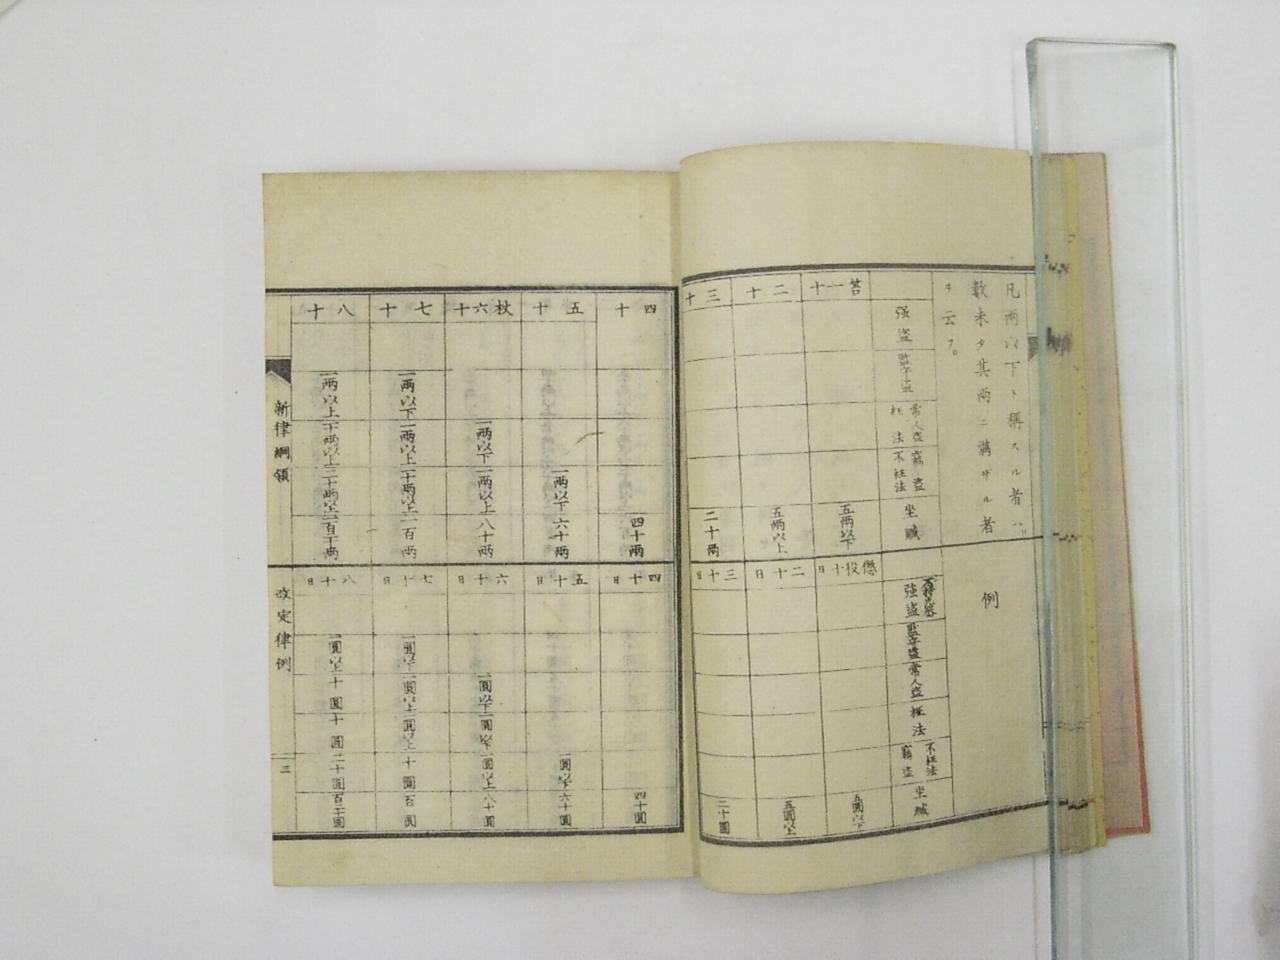 凡兩以下ト稱スル者ハ。
數未タ其兩ニ滿サル者
ヲ云フ。
例
强盜
監守盜
常人盜
枉法
竊盜
不枉法
坐贓
强盜
監守盜
常人盜
枉法
不枉法
竊盜
坐贓
笞一十
五兩以下
懲役十日
五圓以下
二十
五兩以上
二十日
五圓以上
三十
二十兩
三十日
二十圓
四十
四十兩
四十日
四十圓
五十
一兩以下
六十兩
五十日
一圓以下
六十圓
杖六十
一兩以下
一兩以上
八十兩
六十日
一圓以下
一圓以下
一圓以上
八十圓
七十
一兩以下
一兩以上
二十兩以上
一百兩
七十日
一圓以下
一圓以上
一圓以上
十圓
百圓
八十
一兩以上
二十兩以上
一百二十兩
八十日
一圓以上
十圓
十圓
二十圓
百二十圓
新律綱領
改定律例
三